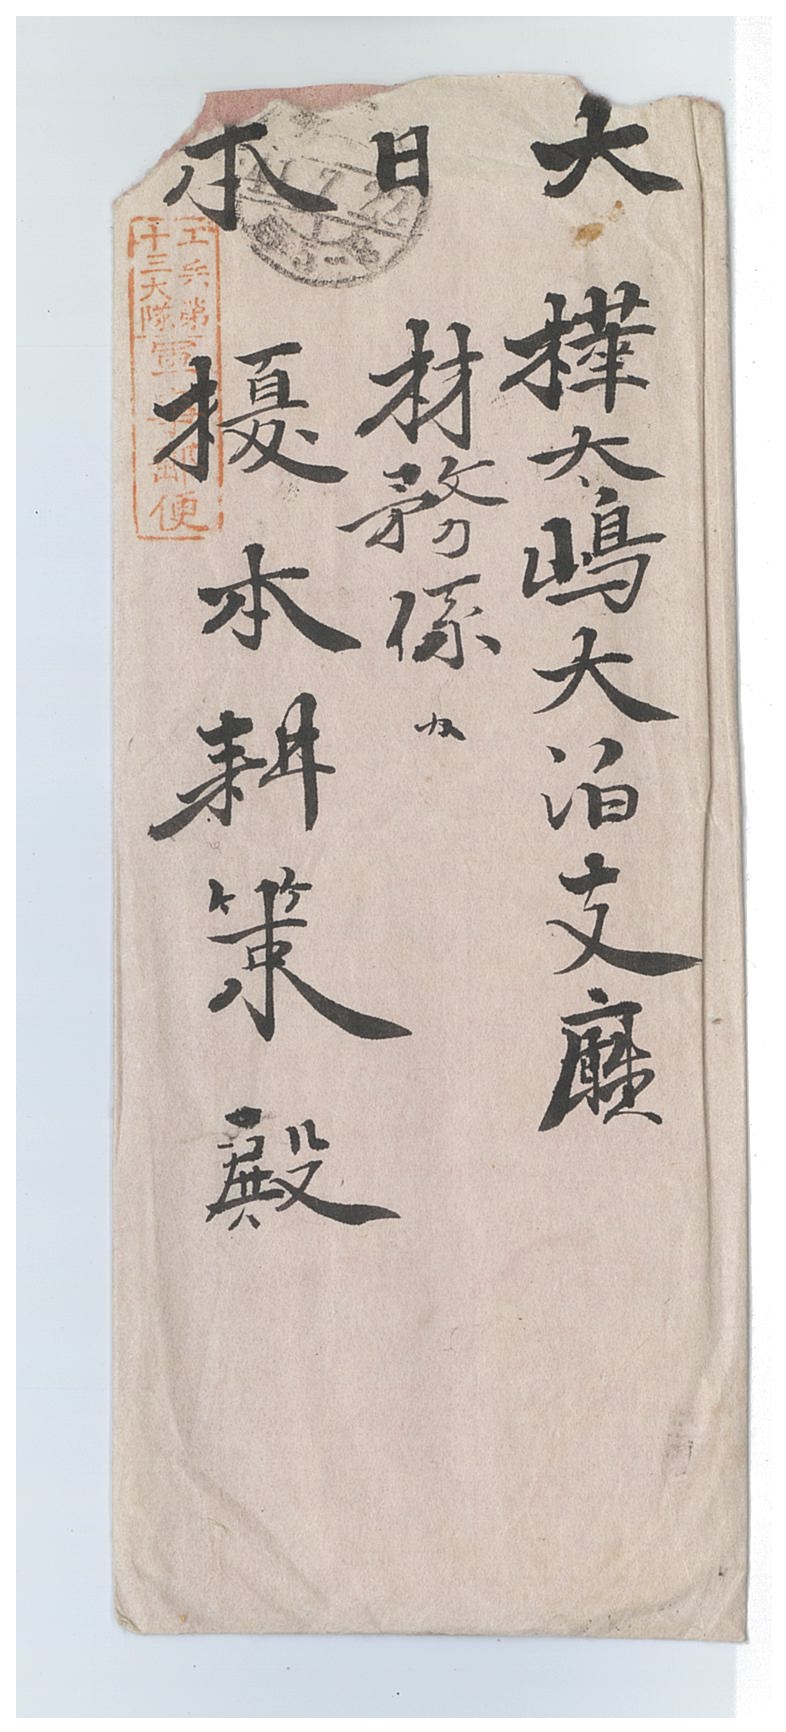 大日本
樺太嶋大泊支廳
材務係
榎本耕策殿
工兵第
十三大隊
軍事郵便